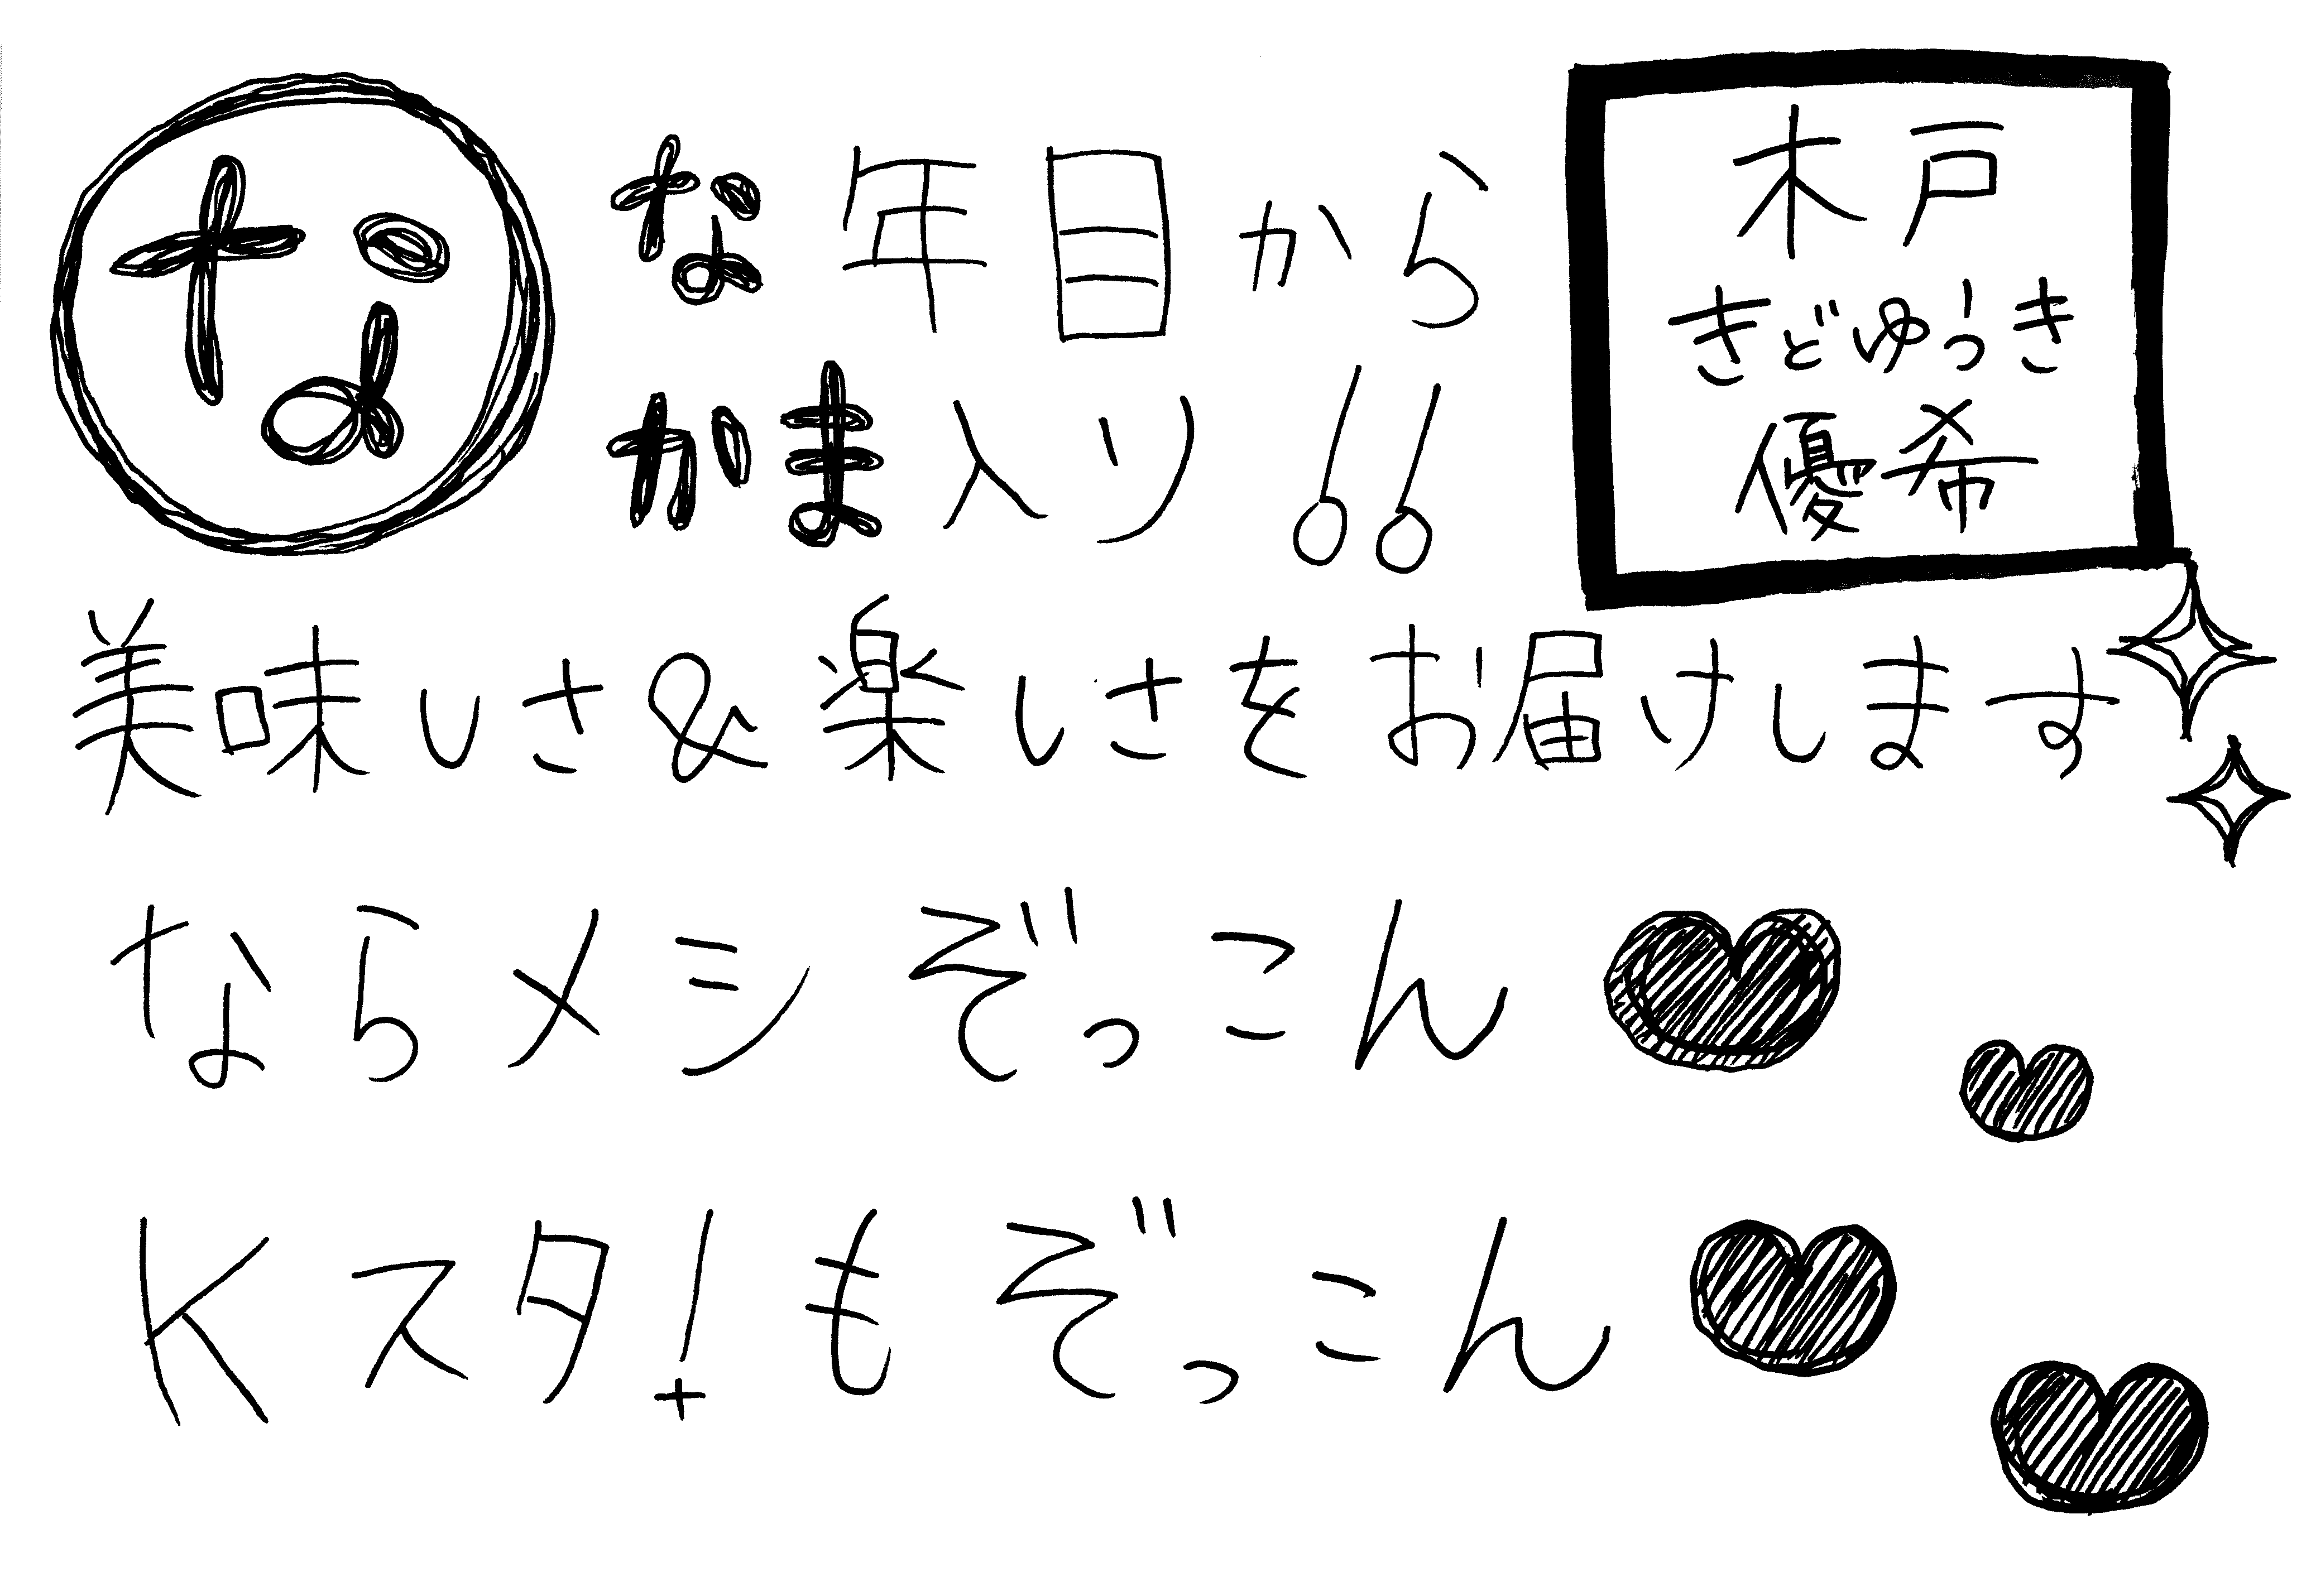 な
な年目から
かま入り!!
木戸
きどゆうき
優希
美味しさ&楽しさをお届けします
ならメシぞっこん
Kスタ!もぞっこん